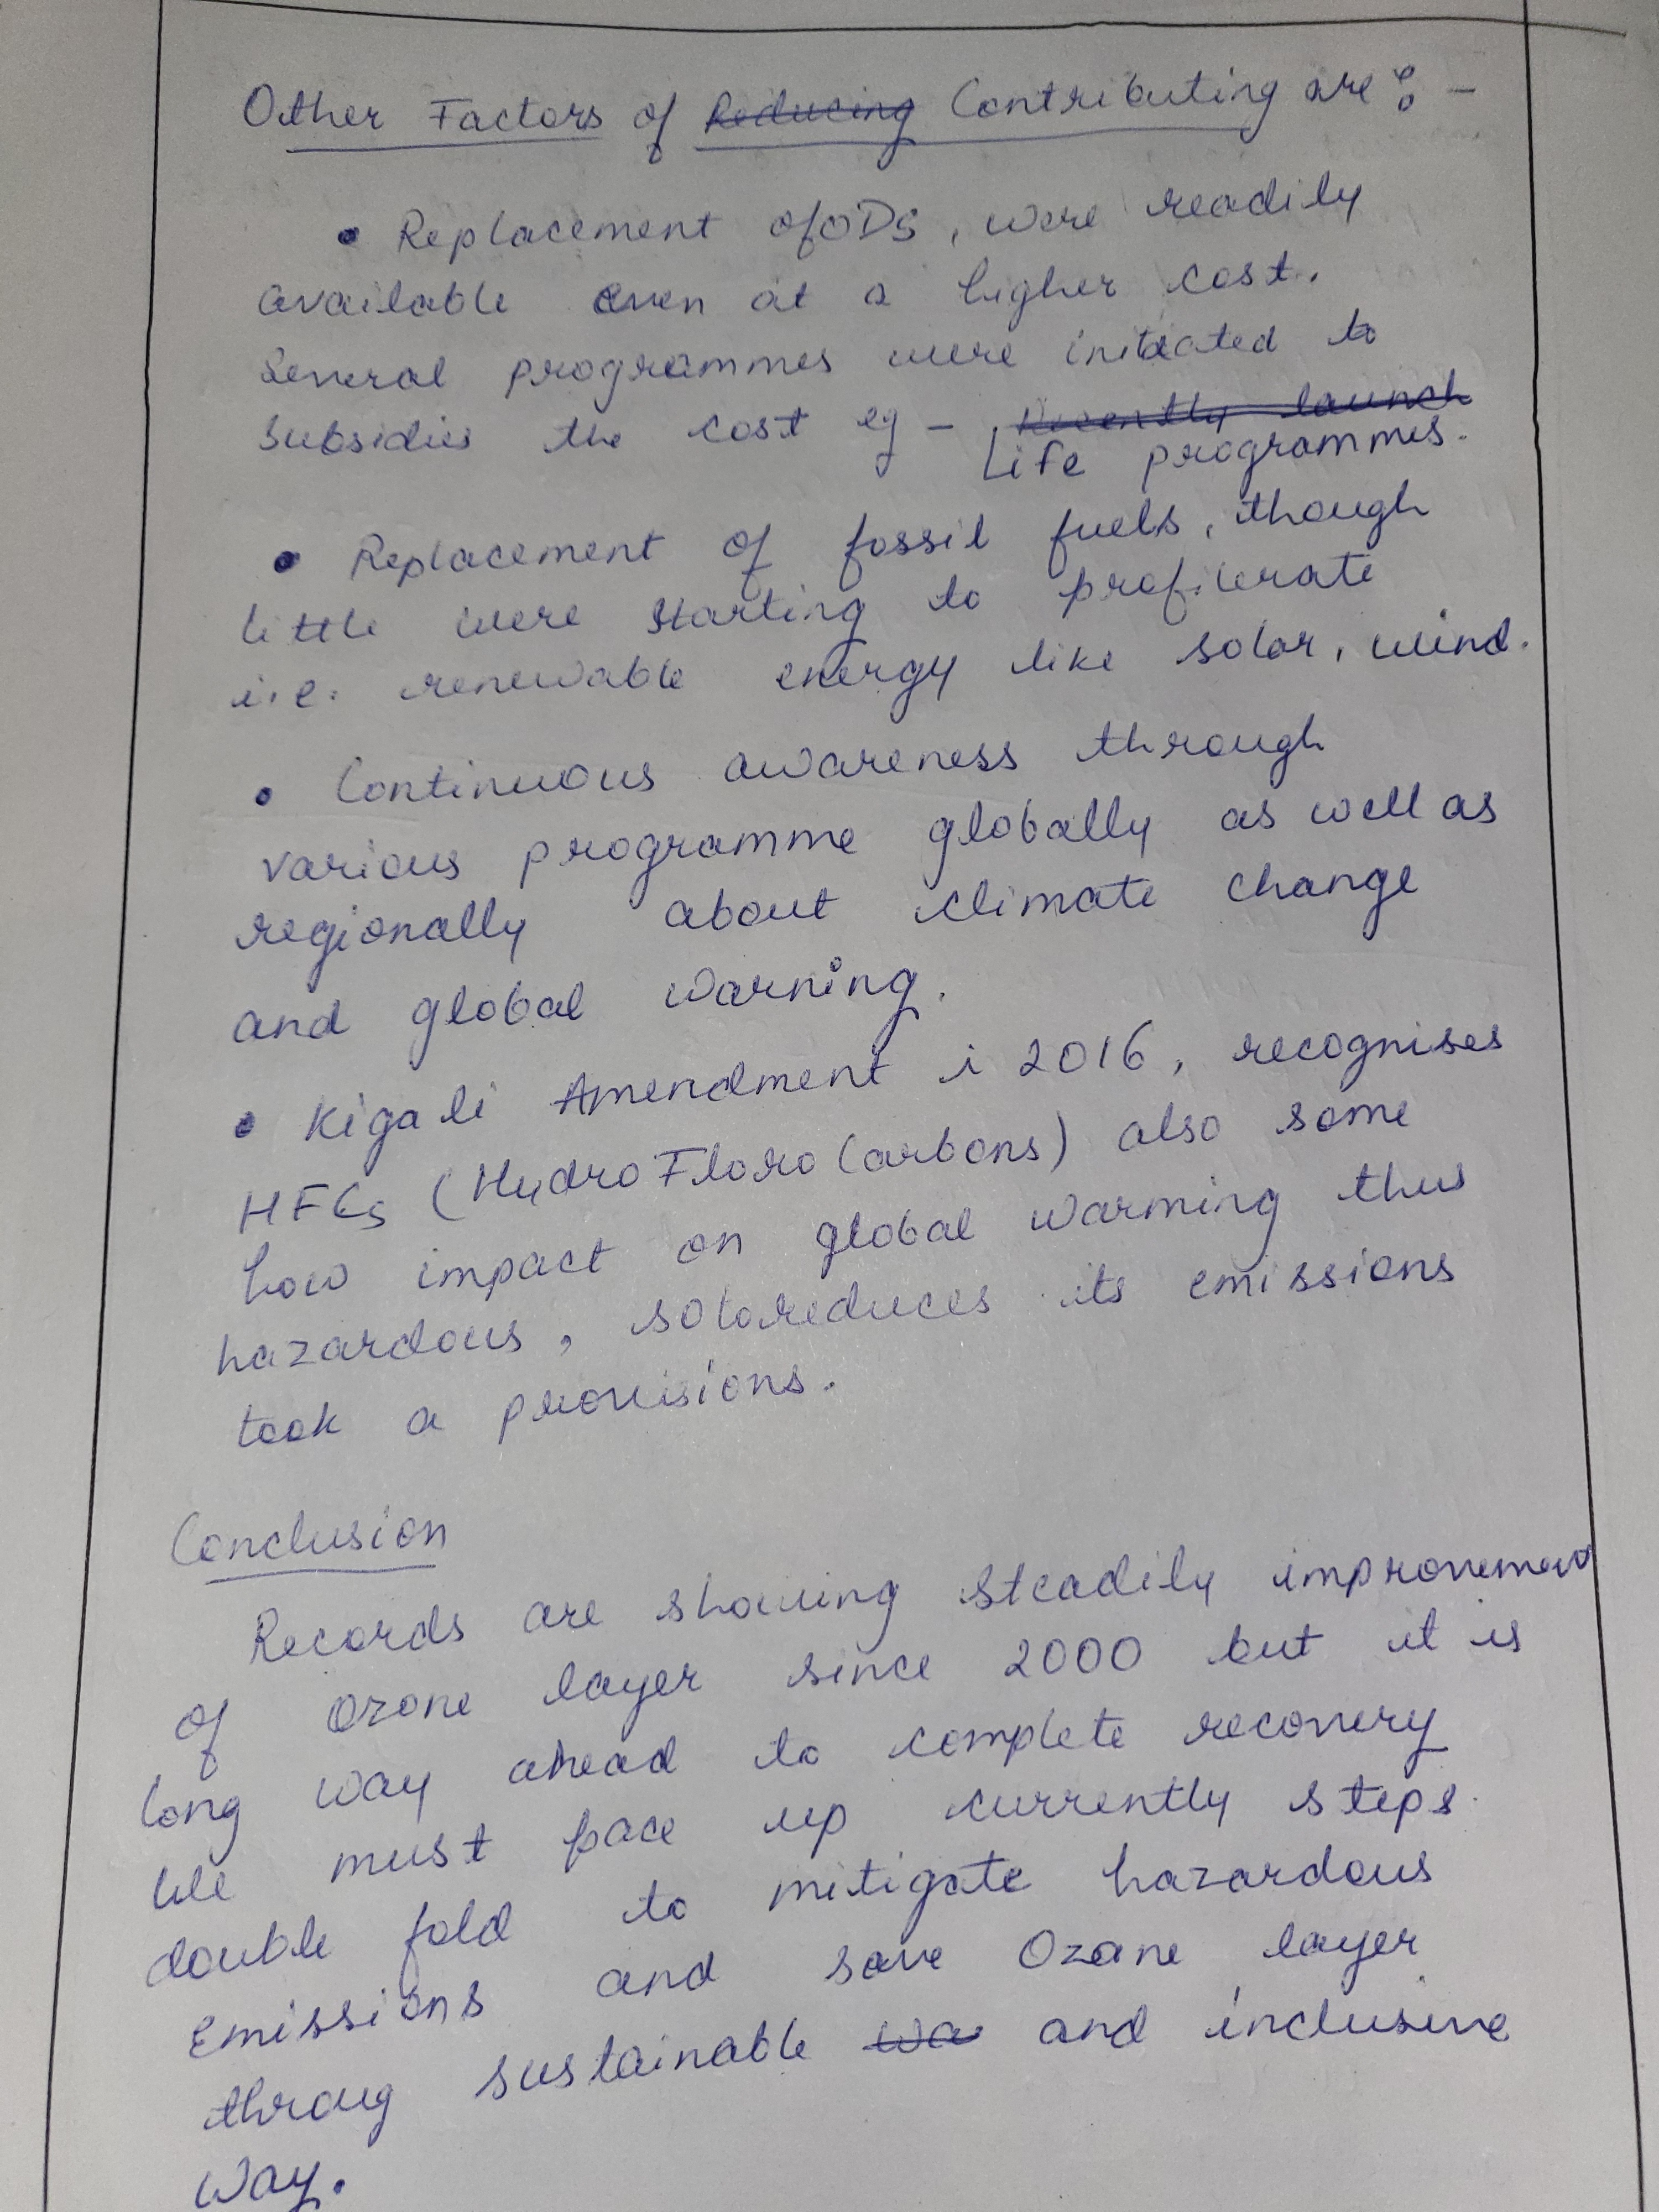 Other Factors of Reducing Contributing are :-
• Replacement of ODS, were readily
available even at a higher cost.
Several programmes were initiated to
subsidies the cost eg - Recently launch
Life programmes.
• Replacement of fossil fuels, though
little were starting to profilerate
i.e. renewable energy like solar, wind.
• Continuous awareness through
various programme globally as well as
regionally about climate change
and global warning.
• Kigali Amendment i 2016, recognises
HFCs (HydroFloroCarbons) also some
how impact on global warming thus
hazardous, so to reduces its emissions
took a provisions.
Conclusion
Records are showing steadily improvement
of Ozone layer since 2000 but it is
long way ahead to complete recovery
We must pace up currently steps
double fold to mitigate hazardous
emissions and save Ozane layer
throug sustainable wa and inclusive
way.